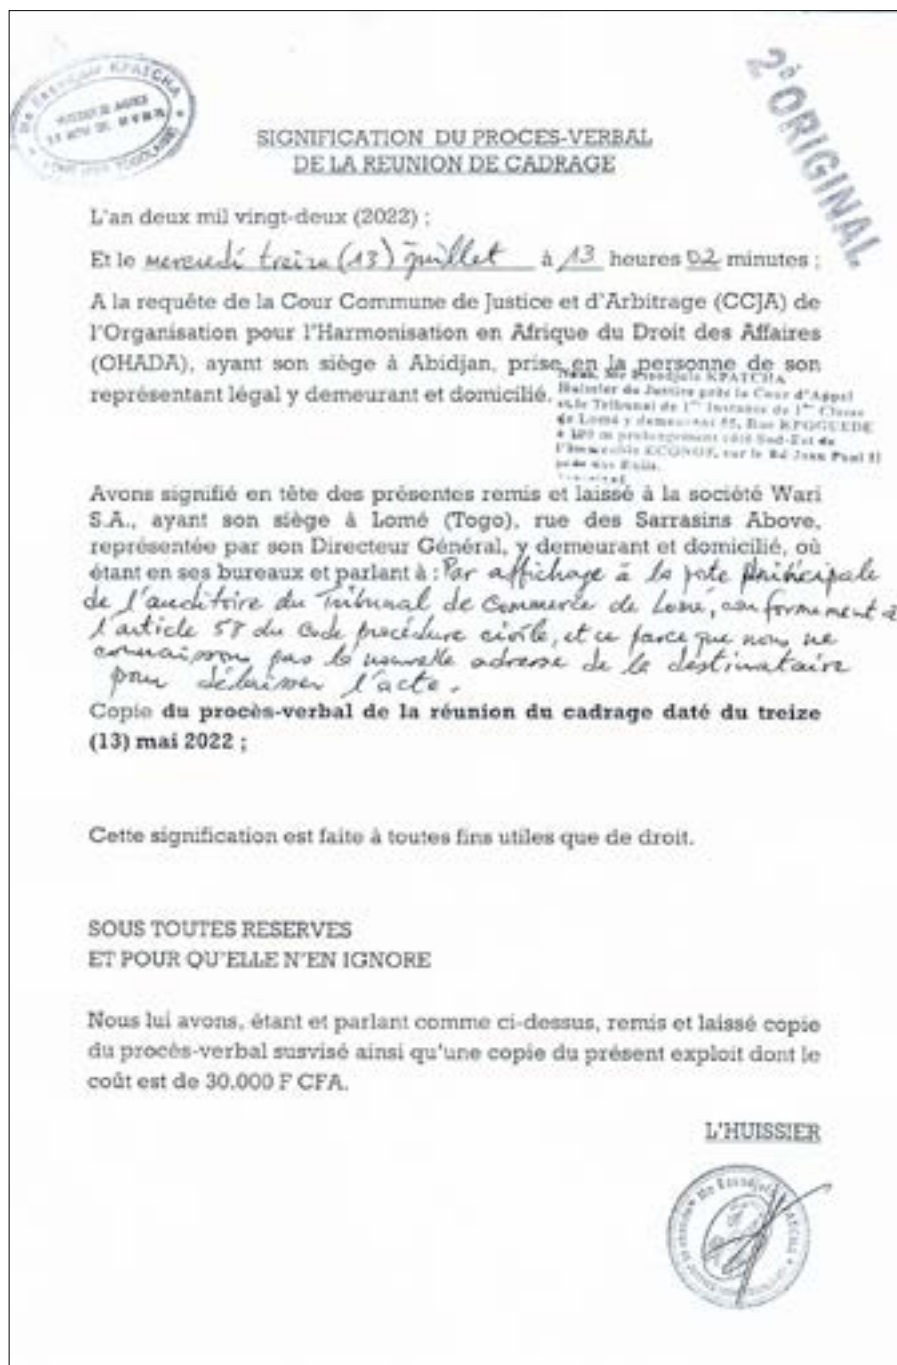 KPATCHA
HUISSIER DE JUSTICE
2è ORIGINAL
SIGNIFICATION DU PROCES-VERBAL
DE LA REUNION DE CADRAGE
L'an deux mil vingt-deux (2022) ;
Et le mercredi treize (13) juillet à 13 heures 02 minutes ;
A la requête de la Cour Commune de Justice et d'Arbitrage (CCJA) de
l'Organisation pour l'Harmonisation en Afrique du Droit des Affaires
(OHADA), ayant son siège à Abidjan, prise en la personne de son
représentant légal y demeurant et domicilié.
Nous, Me Essodjolo KPATCHA
Huissier de Justice près la Cour d'Appel
et le Tribunal de 1ère Instance de 1ère Classe
de Lomé y demeurant 55, Rue KPOGUEDE
à 100 m prolongement côté Sud-Est de
l'Immeuble ECONOF, sur le Bd Jean Paul II
Avons signifié en tête des présentes remis et laissé à la société Wari
S.A., ayant son siège à Lomé (Togo), rue des Sarrasins Above,
représentée par son Directeur Général, y demeurant et domicilié, où
étant en ses bureaux et parlant à : Par affichage à la porte principale
de l'auditoire du Tribunal de Commerce de Lomé, conformément à
l'article 58 du Code procédure civile, et ce parce que nous ne
connaissons pas la nouvelle adresse de la destinataire
pour délaisser l'acte.
Copie du procès-verbal de la réunion du cadrage daté du treize
(13) mai 2022 ;
Cette signification est faite à toutes fins utiles que de droit.
SOUS TOUTES RESERVES
ET POUR QU'ELLE N'EN IGNORE
Nous lui avons, étant et parlant comme ci-dessus, remis et laissé copie
du procès-verbal susvisé ainsi qu'une copie du présent exploit dont le
coût est de 30.000 F CFA.
L'HUISSIER